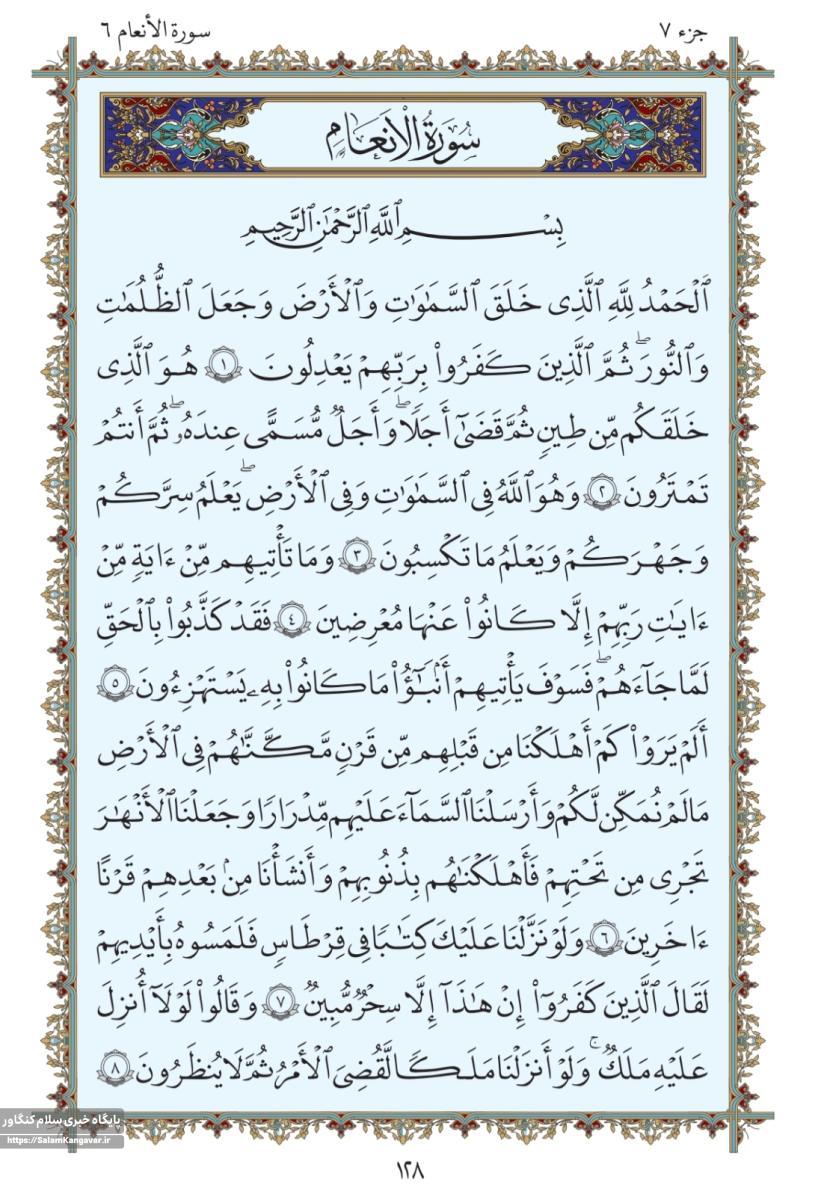 سورة الأنعام ٦
جزء ٧
سُورَةُ الْأَنْعَامِ
بِسْمِ ٱللَّهِ ٱلرَّحْمَٰنِ ٱلرَّحِيمِ
ٱلْحَمْدُ لِلَّهِ ٱلَّذِى خَلَقَ ٱلسَّمَٰوَٰتِ وَٱلْأَرْضَ وَجَعَلَ ٱلظُّلُمَٰتِ
وَٱلنُّورَ ۖ ثُمَّ ٱلَّذِينَ كَفَرُوا۟ بِرَبِّهِمْ يَعْدِلُونَ ١ هُوَ ٱلَّذِى
خَلَقَكُم مِّن طِينٍ ثُمَّ قَضَىٰٓ أَجَلًا ۖ وَأَجَلٌ مُّسَمًّى عِندَهُۥ ۖ ثُمَّ أَنتُمْ
تَمْتَرُونَ ٢ وَهُوَ ٱللَّهُ فِى ٱلسَّمَٰوَٰتِ وَفِى ٱلْأَرْضِ ۖ يَعْلَمُ سِرَّكُمْ
وَجَهْرَكُمْ وَيَعْلَمُ مَا تَكْسِبُونَ ٣ وَمَا تَأْتِيهِم مِّنْ ءَايَةٍ مِّنْ
ءَايَٰتِ رَبِّهِمْ إِلَّا كَانُوا۟ عَنْهَا مُعْرِضِينَ ٤ فَقَدْ كَذَّبُوا۟ بِٱلْحَقِّ
لَمَّا جَآءَهُمْ ۖ فَسَوْفَ يَأْتِيهِمْ أَنۢبَٰٓؤُا۟ مَا كَانُوا۟ بِهِۦ يَسْتَهْزِءُونَ ٥
أَلَمْ يَرَوْا۟ كَمْ أَهْلَكْنَا مِن قَبْلِهِم مِّن قَرْنٍ مَّكَّنَّٰهُمْ فِى ٱلْأَرْضِ
مَا لَمْ نُمَكِّن لَّكُمْ وَأَرْسَلْنَا ٱلسَّمَآءَ عَلَيْهِم مِّدْرَارًا وَجَعَلْنَا ٱلْأَنْهَٰرَ
تَجْرِى مِن تَحْتِهِمْ فَأَهْلَكْنَٰهُم بِذُنُوبِهِمْ وَأَنشَأْنَا مِنۢ بَعْدِهِمْ قَرْنًا
ءَاخَرِينَ ٦ وَلَوْ نَزَّلْنَا عَلَيْكَ كِتَٰبًا فِى قِرْطَاسٍ فَلَمَسُوهُ بِأَيْدِيهِمْ
لَقَالَ ٱلَّذِينَ كَفَرُوٓا۟ إِنْ هَٰذَآ إِلَّا سِحْرٌ مُّبِينٌ ٧ وَقَالُوا۟ لَوْلَآ أُنزِلَ
عَلَيْهِ مَلَكٌ ۖ وَلَوْ أَنزَلْنَا مَلَكًا لَّقُضِىَ ٱلْأَمْرُ ثُمَّ لَا يُنظَرُونَ ٨
پایگاه خبری سلام کنگاور
https://SalamKangavar.ir
١٢٨